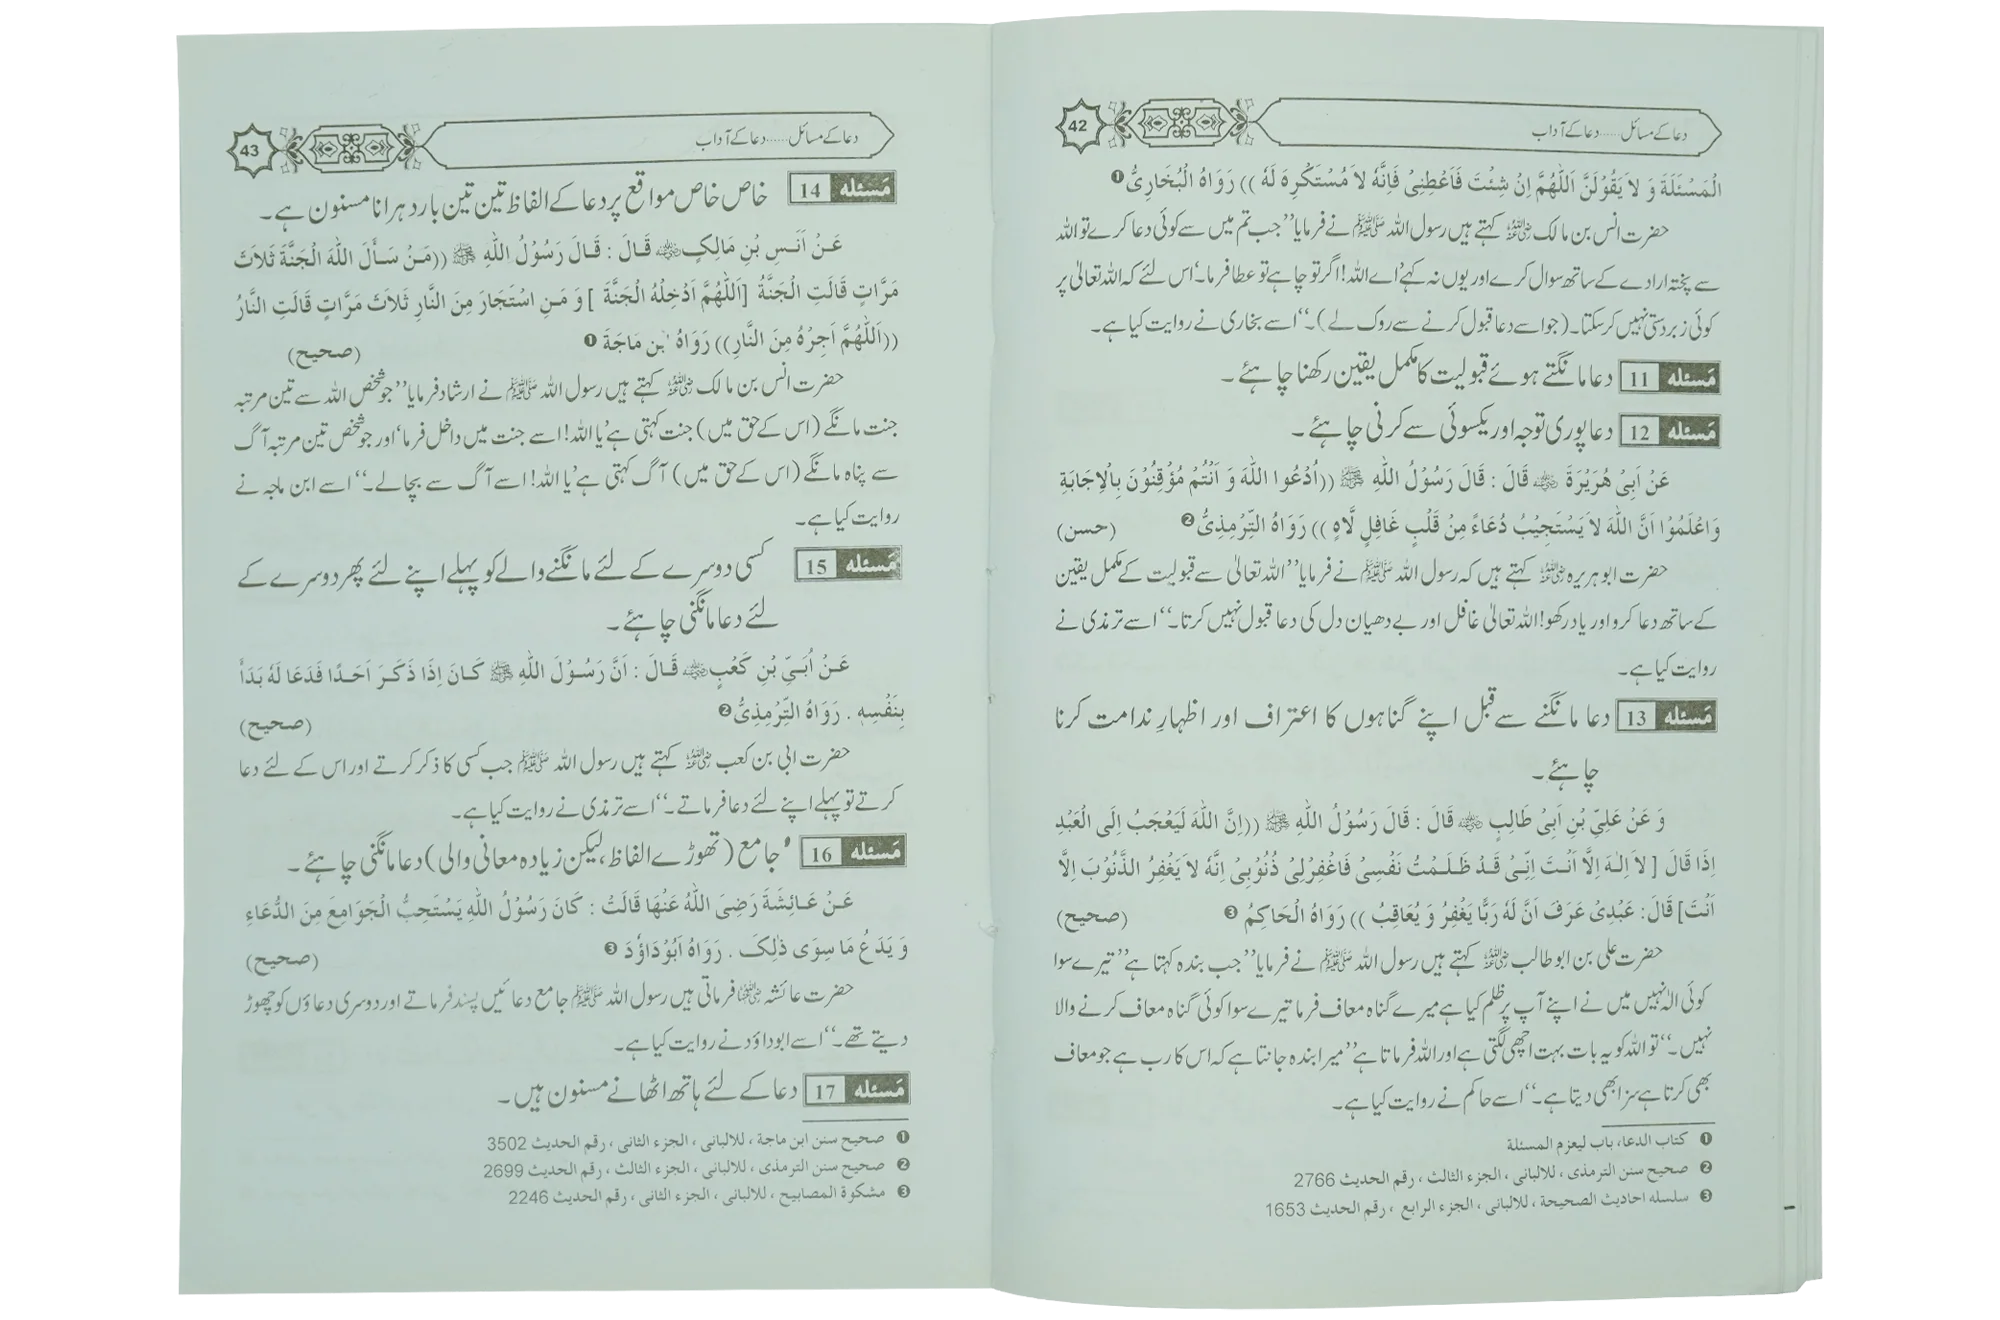 42
دعا کے مسائل......دعا کے آداب
الْمَسْئَلَةَ وَ لاَ یَقُوْلَنَّ اَللّٰهُمَّ اِنْ شِئْتَ فَاَعْطِنِیْ فَاِنَّهُ لاَ مُسْتَکْرِهَ لَهُ )) رَوَاهُ الْبُخَارِیُّ ❶
حضرت انس بن مالک رضی اللہ عنہ کہتے ہیں رسول اللہ ﷺ نے فرمایا ’’جب تم میں سے کوئی دعا کرے تو اللہ
سے پختہ ارادے کے ساتھ سوال کرے اور یوں نہ کہے ’اے اللہ! اگر تو چاہے تو عطا فرما۔‘ اس لئے کہ اللہ تعالیٰ پر
کوئی زبردستی نہیں کر سکتا۔ (جو اسے دعا قبول کرنے سے روک لے)۔‘‘ اسے بخاری نے روایت کیا ہے۔
مسئلہ 11 دعا مانگتے ہوئے قبولیت کا مکمل یقین رکھنا چاہئے۔
مسئلہ 12 دعا پوری توجہ اور یکسوئی سے کرنی چاہئے۔
عَنْ اَبِیْ هُرَیْرَةَ ؓ قَالَ : قَالَ رَسُوْلُ اللّٰهِ ﷺ ((اُدْعُوا اللّٰهَ وَ اَنْتُمْ مُؤْقِنُوْنَ بِالْاِجَابَةِ
وَاعْلَمُوْا اَنَّ اللّٰهَ لاَ یَسْتَجِیْبُ دُعَاءً مِنْ قَلْبٍ غَافِلٍ لَّاهٍ )) رَوَاهُ التِّرْمِذِیُّ ❷ (حسن)
حضرت ابو ہریرہ رضی اللہ عنہ کہتے ہیں کہ رسول اللہ ﷺ نے فرمایا ’’اللہ تعالیٰ سے قبولیت کے مکمل یقین
کے ساتھ دعا کرو اور یاد رکھو! اللہ تعالیٰ غافل اور بے دھیان دل کی دعا قبول نہیں کرتا۔‘‘ اسے ترمذی نے
روایت کیا ہے۔
مسئلہ 13 دعا مانگنے سے قبل اپنے گناہوں کا اعتراف اور اظہارِ ندامت کرنا
چاہئے۔
وَ عَنْ عَلِیِّ بْنِ اَبِیْ طَالِبٍ ؓ قَالَ : قَالَ رَسُوْلُ اللّٰهِ ﷺ ((اِنَّ اللّٰهَ لَیَعْجَبُ اِلَی الْعَبْدِ
اِذَا قَالَ [ لاَ اِلٰهَ اِلَّا اَنْتَ اِنِّیْ قَدْ ظَلَمْتُ نَفْسِیْ فَاغْفِرْلِیْ ذُنُوْبِیْ اِنَّهُ لاَ یَغْفِرُ الذُّنُوْبَ اِلَّا
اَنْتَ] قَالَ: عَبْدِیْ عَرَفَ اَنَّ لَهُ رَبًّا یَغْفِرُ وَ یُعَاقِبُ )) رَوَاهُ الْحَاکِمُ ❸ (صحیح)
حضرت علی بن ابو طالب رضی اللہ عنہ کہتے ہیں رسول اللہ ﷺ نے فرمایا ’’جب بندہ کہتا ہے ’’تیرے سوا
کوئی الٰہ نہیں میں نے اپنے آپ پر ظلم کیا ہے میرے گناہ معاف فرما تیرے سوا کوئی گناہ معاف کرنے والا
نہیں۔‘‘ تو اللہ کو یہ بات بہت اچھی لگتی ہے اور اللہ فرماتا ہے ’’میرا بندہ جانتا ہے کہ اس کا رب ہے جو معاف
بھی کرتا ہے سزا بھی دیتا ہے۔‘‘ اسے حاکم نے روایت کیا ہے۔
❶ کتاب الدعا، باب لیعزم المسئلة
❷ صحیح سنن الترمذی ، للالبانی ، الجزء الثالث ، رقم الحدیث 2766
❸ سلسله احادیث الصحیحة ، للالبانی ، الجزء الرابع ، رقم الحدیث 1653
43
دعا کے مسائل......دعا کے آداب
مسئلہ 14 خاص خاص مواقع پر دعا کے الفاظ تین تین بار دہرانا مسنون ہے۔
عَنْ اَنَسِ بْنِ مَالِکٍ ؓ قَالَ : قَالَ رَسُوْلُ اللّٰهِ ﷺ ((مَنْ سَأَلَ اللّٰهَ الْجَنَّةَ ثَلاَثَ
مَرَّاتٍ قَالَتِ الْجَنَّةُ [اَللّٰهُمَّ اَدْخِلْهُ الْجَنَّةَ ] وَ مَنِ اسْتَجَارَ مِنَ النَّارِ ثَلاَثَ مَرَّاتٍ قَالَتِ النَّارُ
((اَللّٰهُمَّ اَجِرْهُ مِنَ النَّارِ)) رَوَاهُ ابْن مَاجَةَ ❶ (صحیح)
حضرت انس بن مالک رضی اللہ عنہ کہتے ہیں رسول اللہ ﷺ نے ارشاد فرمایا ’’جو شخص اللہ سے تین مرتبہ
جنت مانگے (اس کے حق میں) جنت کہتی ہے ’یا اللہ! اسے جنت میں داخل فرما‘ اور جو شخص تین مرتبہ آگ
سے پناہ مانگے (اس کے حق میں) آگ کہتی ہے ’یا اللہ! اسے آگ سے بچا لے۔‘‘ اسے ابن ماجہ نے
روایت کیا ہے۔
مسئلہ 15 کسی دوسرے کے لئے مانگنے والے کو پہلے اپنے لئے پھر دوسرے کے
لئے دعا مانگنی چاہئے۔
عَنْ اُبَیِّ بْنِ کَعْبٍ ؓ قَالَ : اَنَّ رَسُوْلَ اللّٰهِ ﷺ کَانَ اِذَا ذَکَرَ اَحَدًا فَدَعَا لَهُ بَدَأَ
بِنَفْسِهِ . رَوَاهُ التِّرْمِذِیُّ ❷ (صحیح)
حضرت ابی بن کعب رضی اللہ عنہ کہتے ہیں رسول اللہ ﷺ جب کسی کا ذکر کرتے اور اس کے لئے دعا
کرتے تو پہلے اپنے لئے دعا فرماتے۔‘‘ اسے ترمذی نے روایت کیا ہے۔
مسئلہ 16 ’جامع (تھوڑے الفاظ، لیکن زیادہ معانی والی) دعا مانگنی چاہئے۔
عَنْ عَائِشَةَ رَضِیَ اللّٰهُ عَنْهَا قَالَتْ : کَانَ رَسُوْلُ اللّٰهِ یَسْتَحِبُّ الْجَوَامِعَ مِنَ الدُّعَاءِ
وَ یَدَعُ مَا سِوَی ذٰلِکَ . رَوَاهُ اَبُوْدَاوٗدَ ❸ (صحیح)
حضرت عائشہ رضی اللہ عنہا فرماتی ہیں رسول اللہ ﷺ جامع دعائیں پسند فرماتے اور دوسری دعاؤں کو چھوڑ
دیتے تھے۔‘‘ اسے ابوداؤد نے روایت کیا ہے۔
مسئلہ 17 دعا کے لئے ہاتھ اٹھانے مسنون ہیں۔
❶ صحیح سنن ابن ماجة ، للالبانی ، الجزء الثانی ، رقم الحدیث 3502
❷ صحیح سنن الترمذی ، للالبانی ، الجزء الثالث ، رقم الحدیث 2699
❸ مشکوة المصابیح ، للالبانی ، الجزء الثانی ، رقم الحدیث 2246